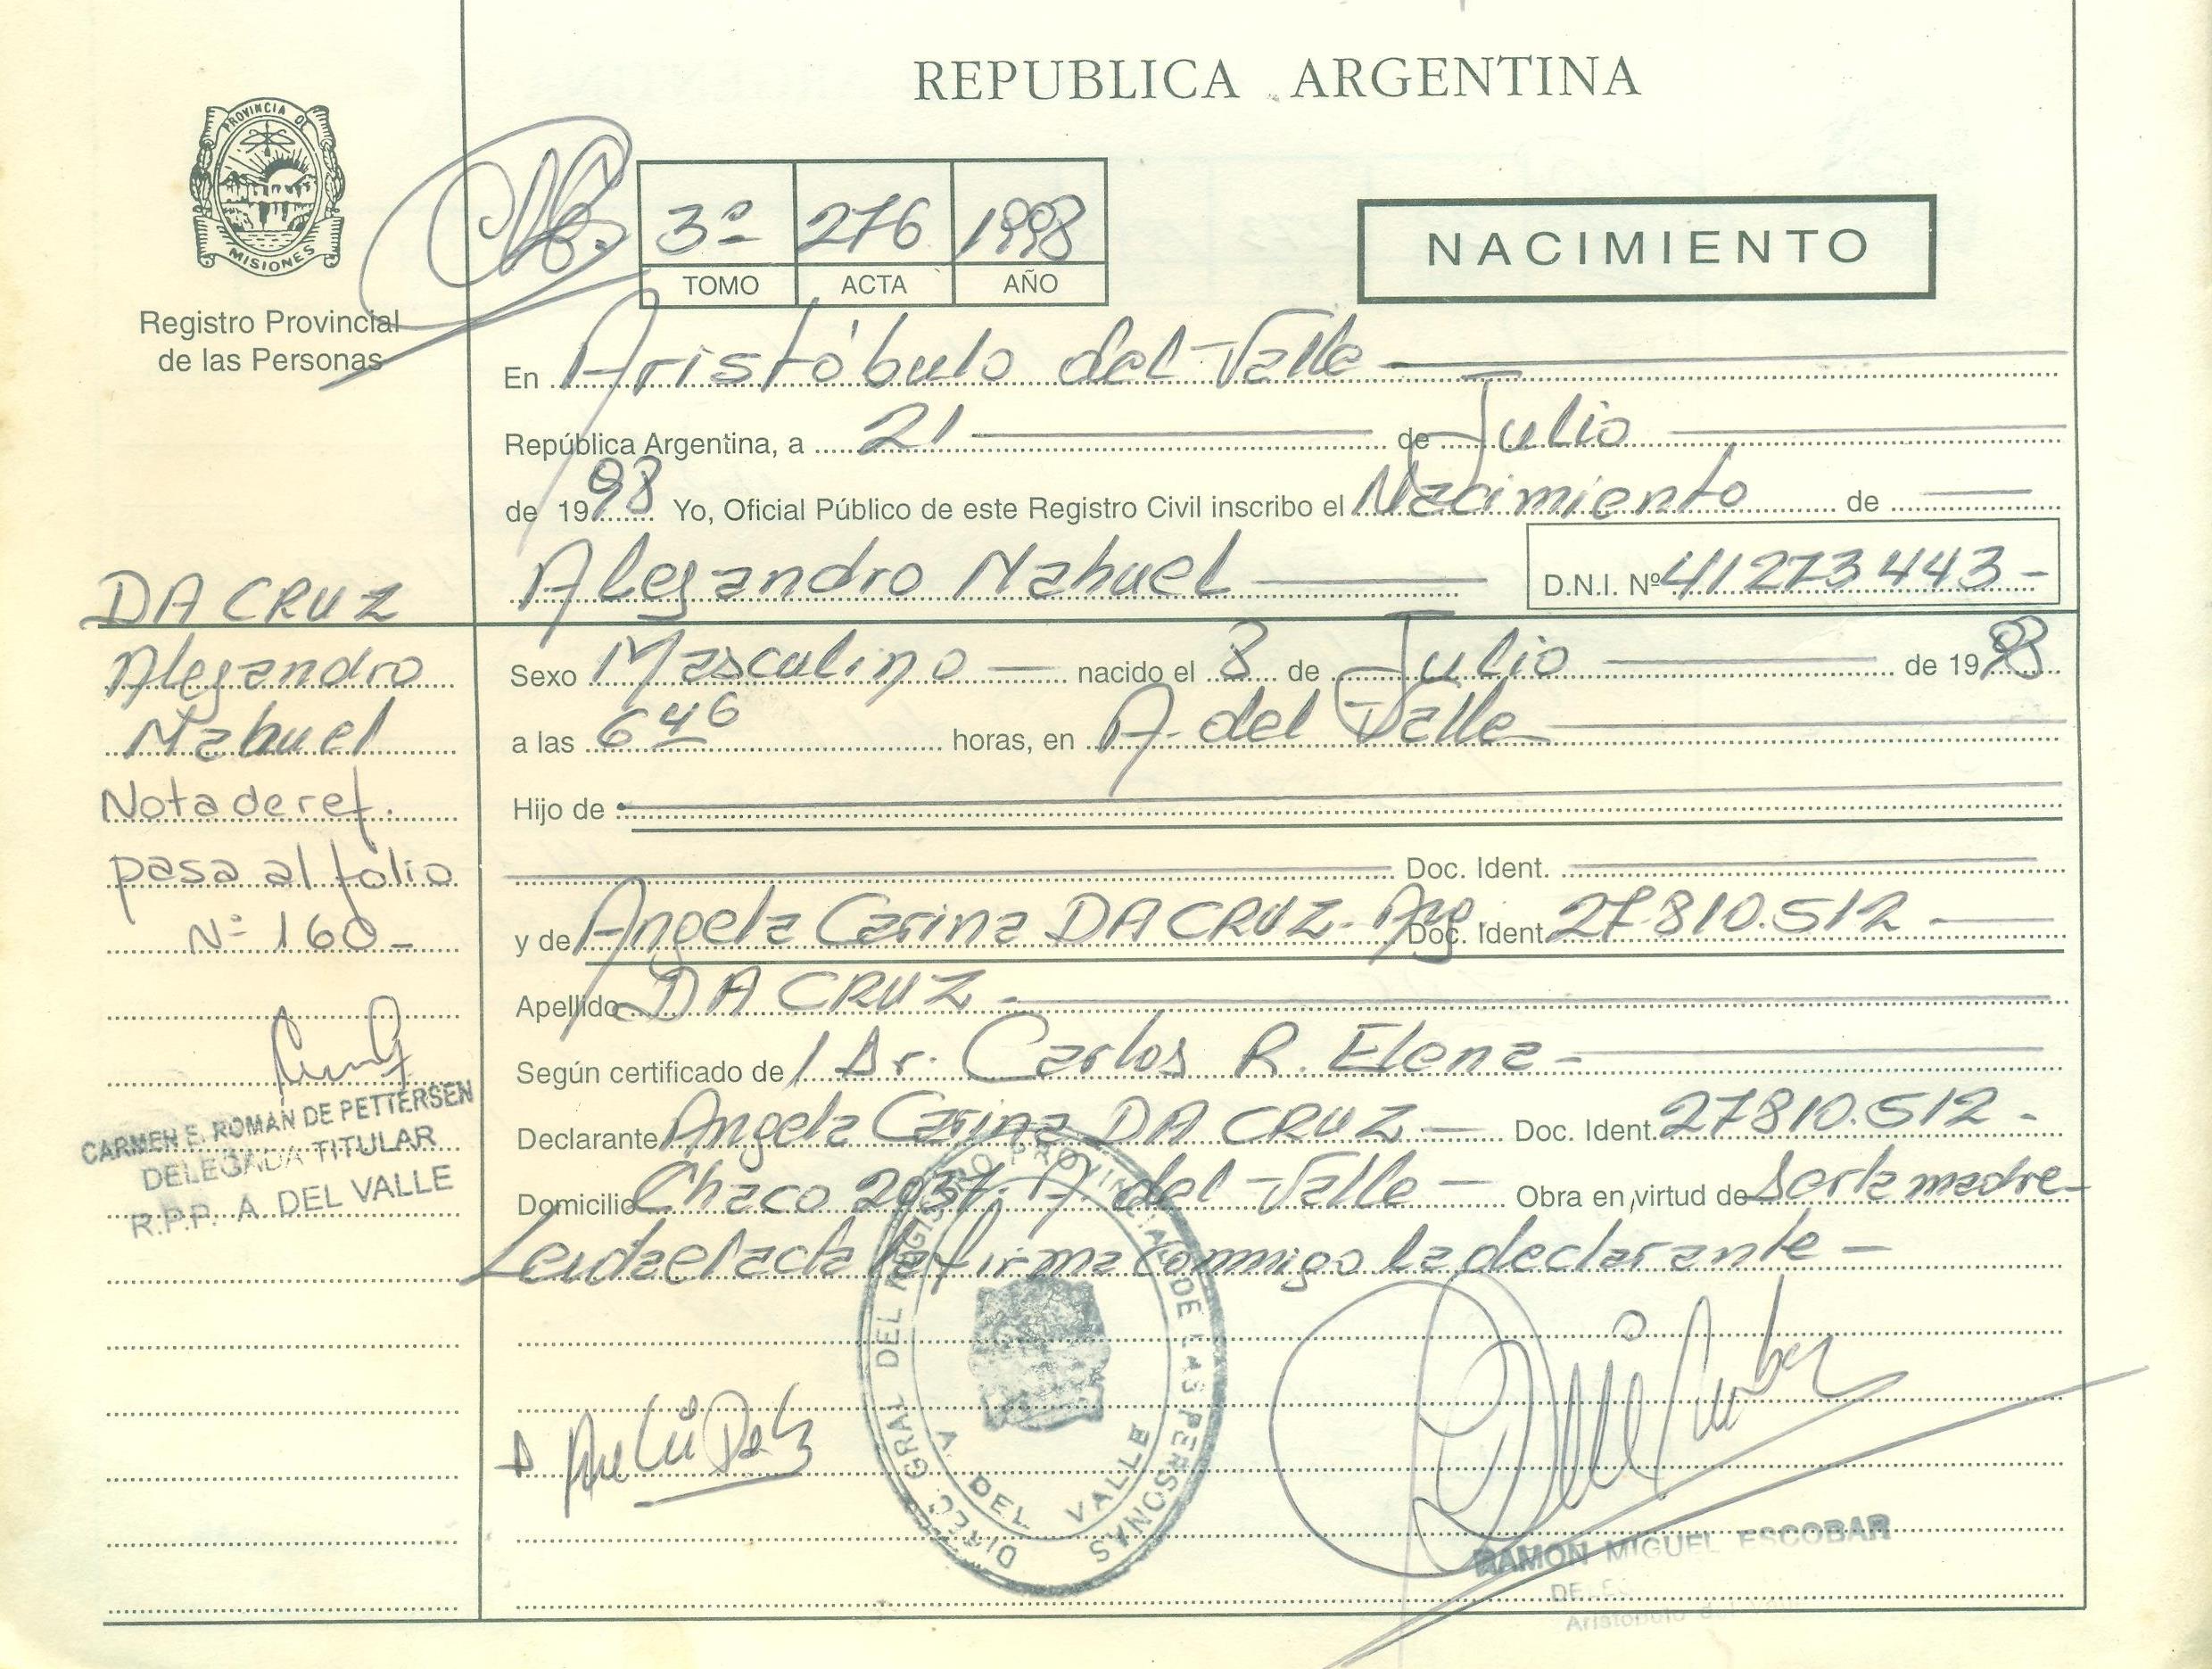 REPUBLICA ARGENTINA
PROVINCIA DE
MISIONES
Registro Provincial
de las Personas
3º 276 1998
TOMO ACTA AÑO
NACIMIENTO
En Aristóbulo del Valle
República Argentina, a 21 de Julio
de 1998 Yo, Oficial Público de este Registro Civil inscribo el Nacimiento de
Alejandro Nahuel D.N.I. Nº 41273443-
DA CRUZ
Alejandro
Nahuel
Nota de ref.
pasa al folio
Nº 160-
CARMEN E. ROMAN DE PETTERSEN
DELEGADA TITULAR
R.P.P. A. DEL VALLE
Sexo Masculino nacido el 8 de Julio de 1998
a las 6 46 horas, en A. del Valle
Hijo de
Doc. Ident.
y de Angela Carina DA CRUZ- Arg. Doc. Ident. 27.810.512
Apellido DA CRUZ-
Según certificado de / Dr. Carlos R. Elena-
Declarante Angela Carina DA CRUZ Doc. Ident. 27810.512-
Domicilio Chaco 2037. A. del Valle Obra en virtud de Ser la madre
Leida el acta la firma conmigo la declarante
DIREC. GRAL DEL REGISTRO PROVINCIAL DE LAS PERSONAS
A. DEL VALLE
RAMON MIGUEL ESCOBAR
Aristobulo del